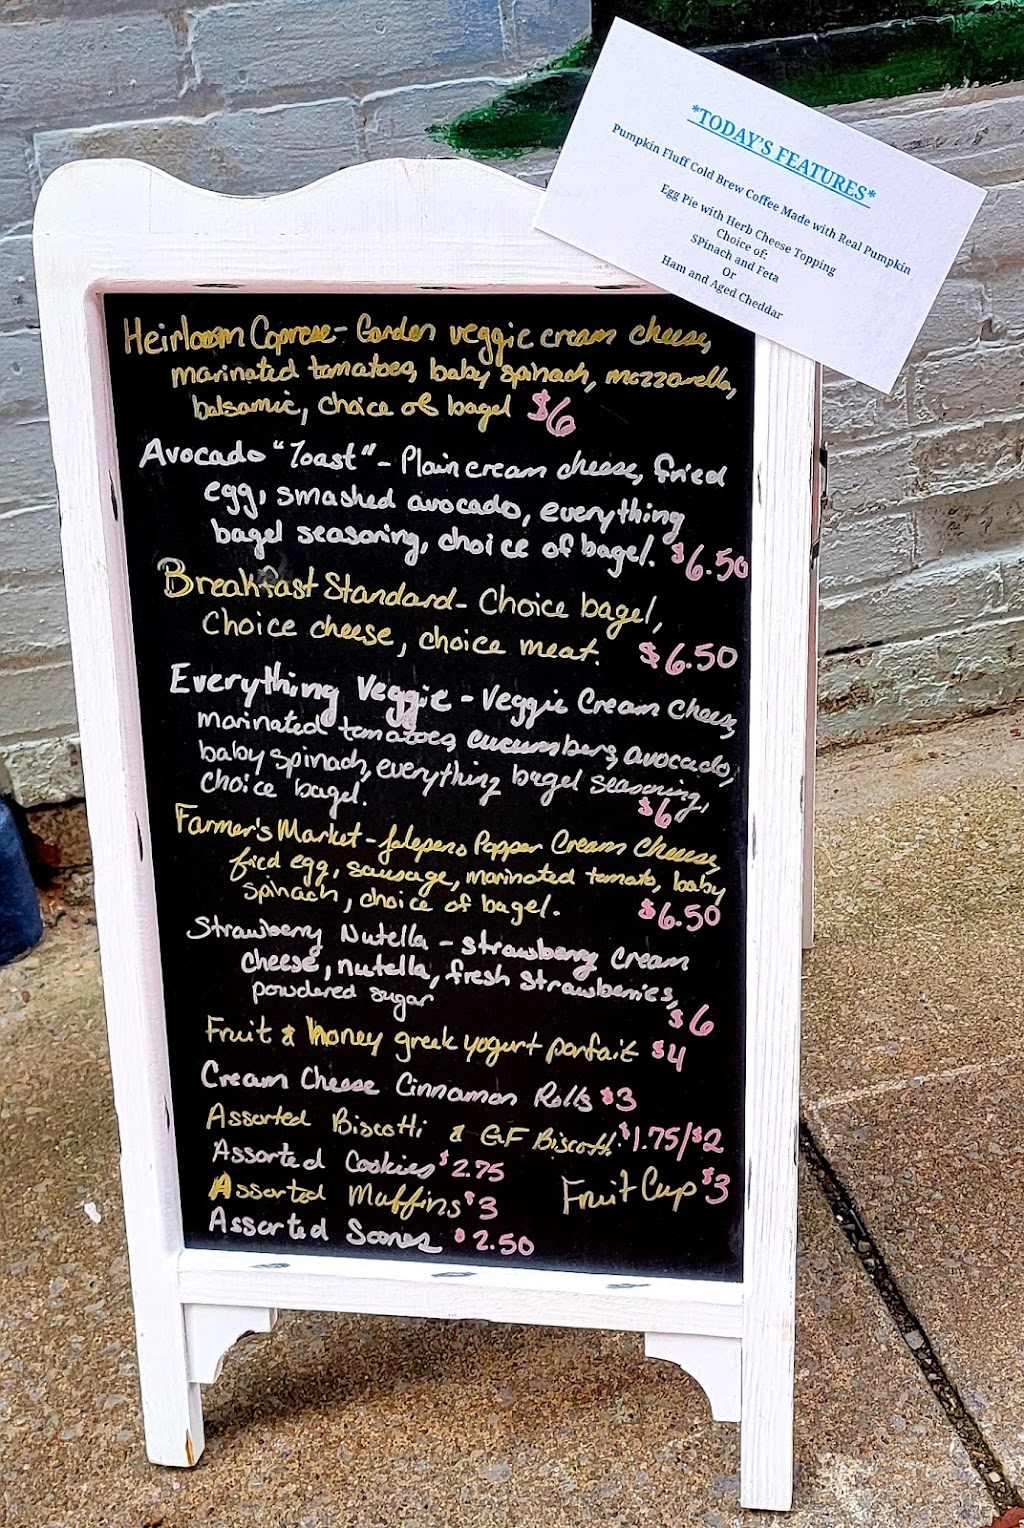 *TODAY'S FEATURES*
Pumpkin Fluff Cold Brew Coffee Made with Real Pumpkin
Egg Pie with Herb Cheese Topping
Choice of:
SPinach and Feta
Or
Ham and Aged Cheddar
Heirloom Caprese - Garden veggie cream cheese,
marinated tomatoes, baby spinach, mozzarella,
balsamic, choice of bagel $6
Avocado "Toast" - Plain cream cheese, fried
egg, smashed avocado, everything
bagel seasoning, choice of bagel. $6.50
Breakfast Standard - Choice bagel,
Choice cheese, choice meat. $6.50
Everything Veggie - Veggie Cream Cheese,
marinated tomatoes, cucumbers, avocado,
baby spinach, everything bagel seasoning,
choice bagel. $6
Farmer's Market - Jalepeno Popper Cream Cheese,
fried egg, sausage, marinated tomato, baby
spinach, choice of bagel. $6.50
Strawberry Nutella - strawberry cream
cheese, nutella, fresh strawberries,
powdered sugar $6
Fruit & honey greek yogurt parfait $4
Cream Cheese Cinnamon Rolls $3
Assorted Biscotti & GF Biscotti $1.75/$2
Assorted Cookies $2.75
Assorted Muffins $3 Fruit Cup $3
Assorted Scones $2.50